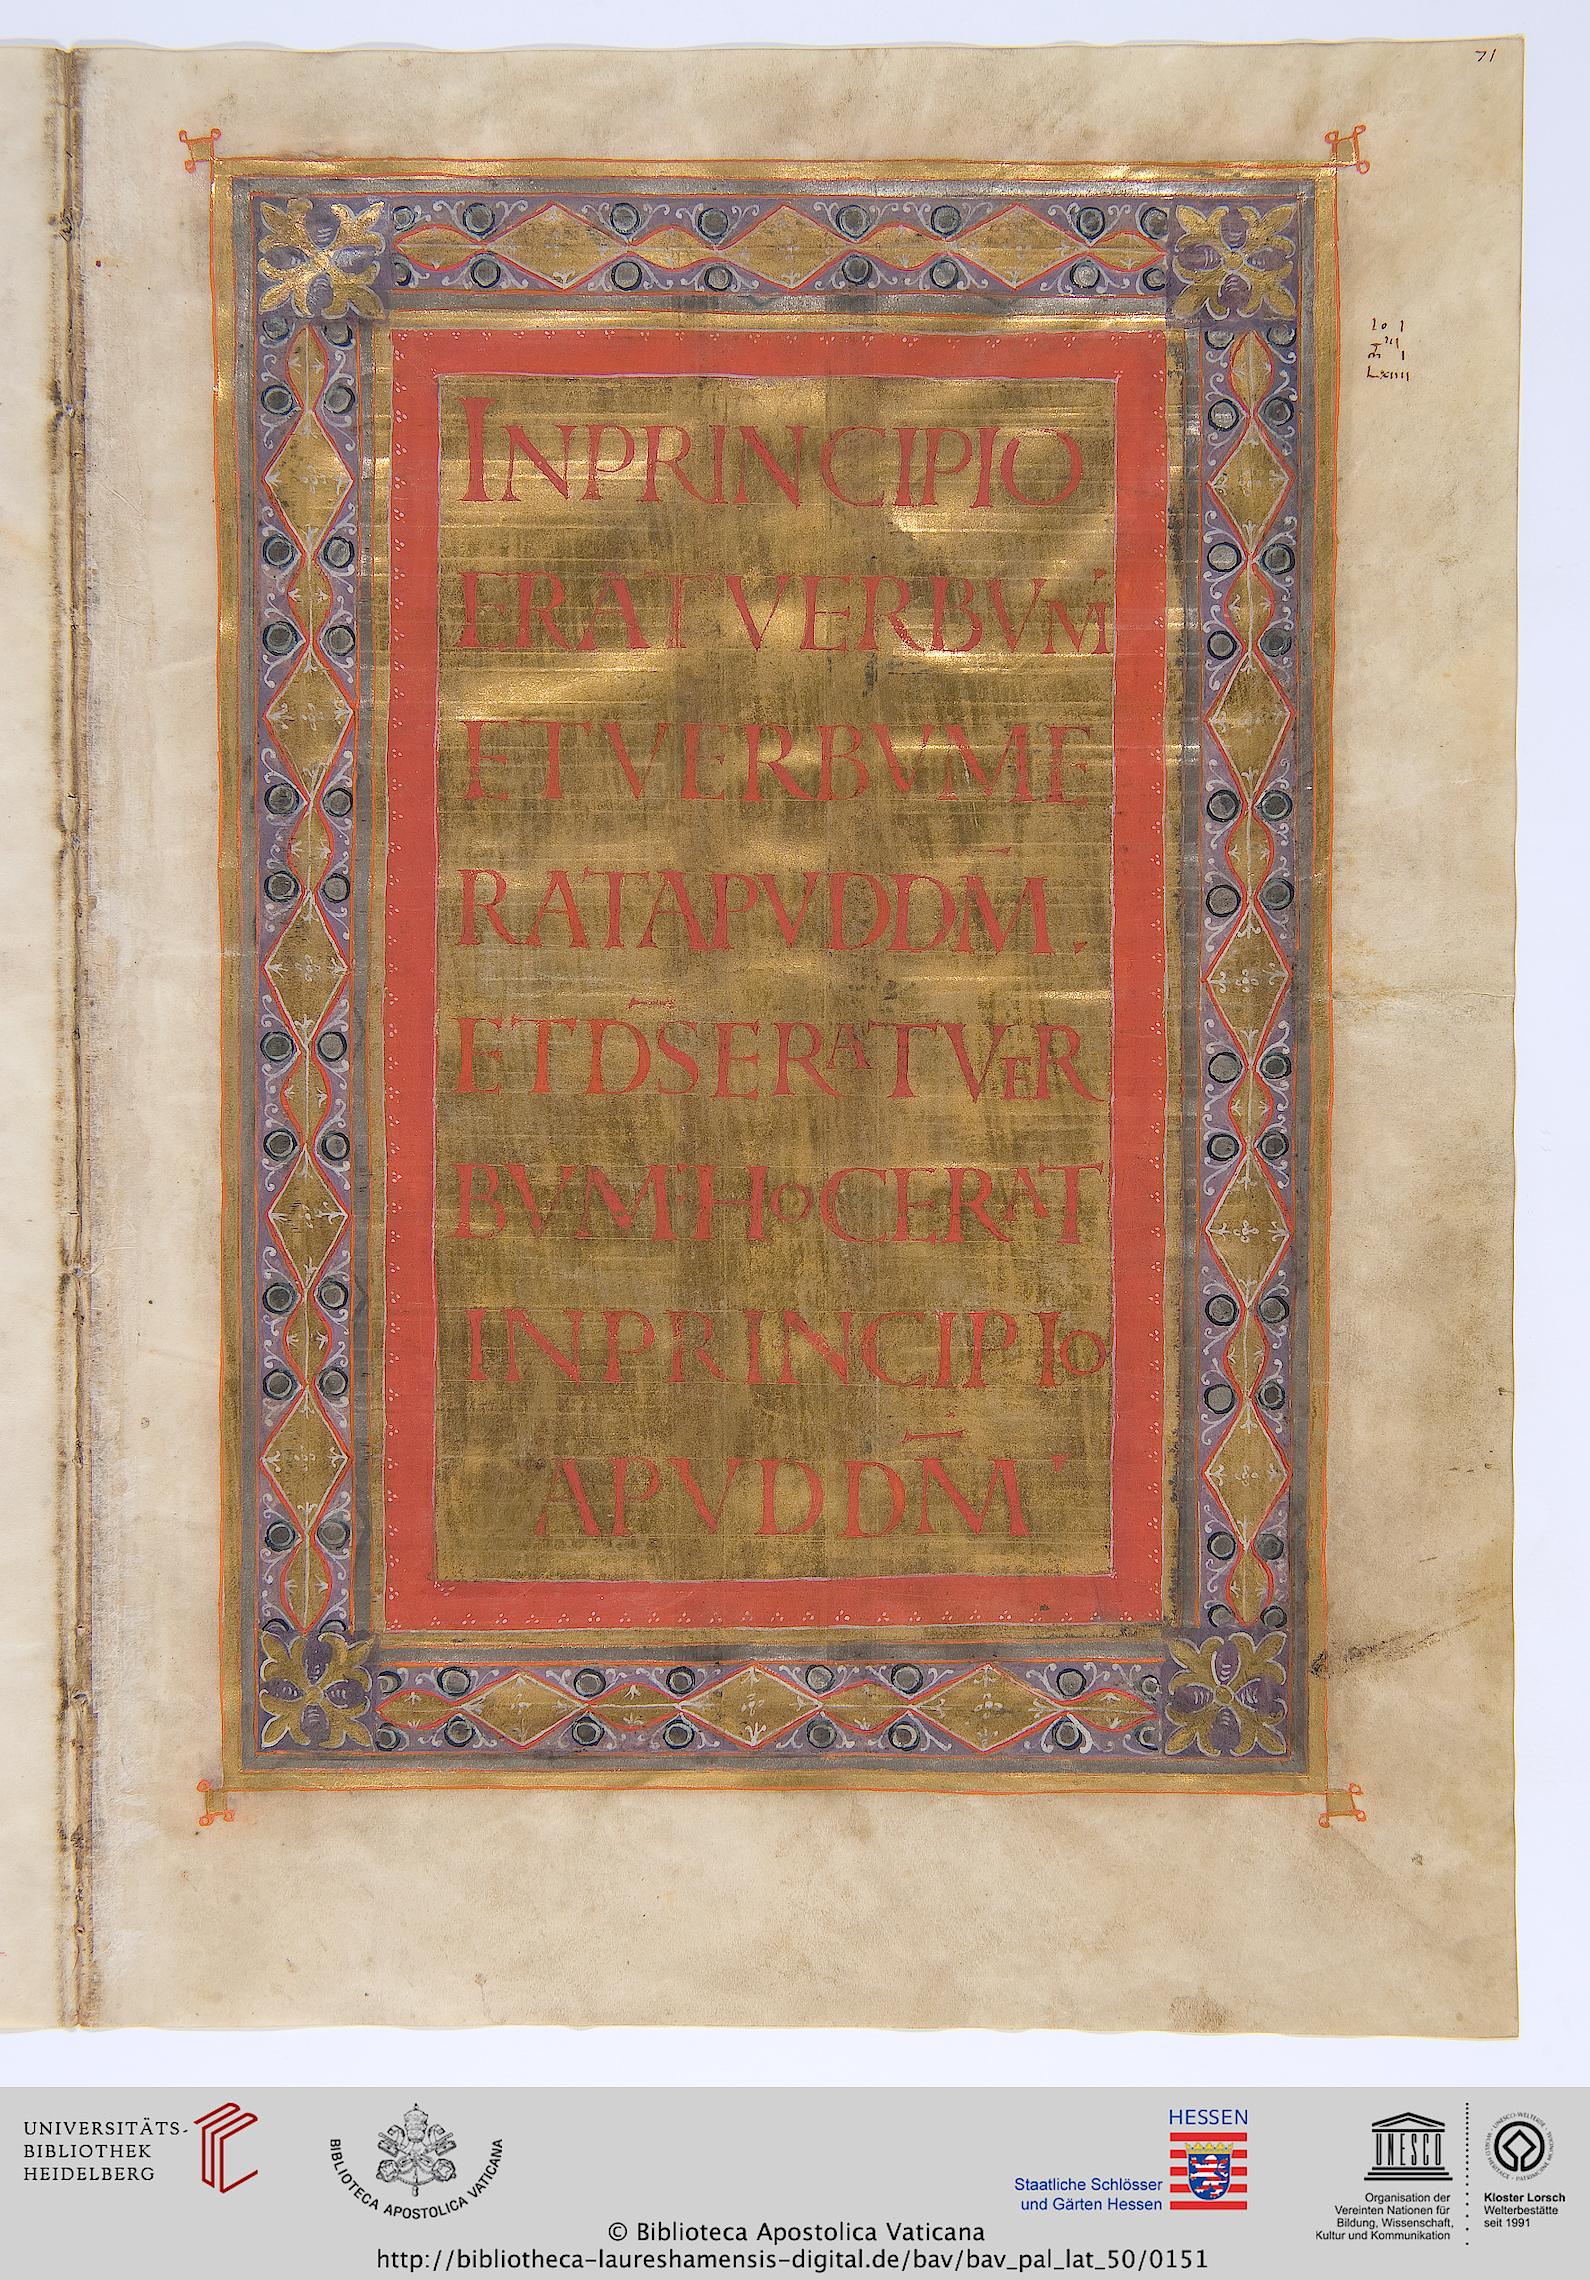 71
INPRINCIPIO
ERAT VERBVM
ETVERBVME
RATAPVDDM̅.
ETD̅SERATVER
BVM·HOCERAT
INPRINCIPIO
APVDDM̅'
Io I
LXIIII
UNIVERSITÄTS-
BIBLIOTHEK
HEIDELBERG
BIBLIOTECA APOSTOLICA VATICANA
HESSEN
Staatliche Schlösser
und Gärten Hessen
UNESCO
Organisation der
Vereinten Nationen für
Bildung, Wissenschaft,
Kultur und Kommunikation
Kloster Lorsch
Welterbestätte
seit 1991
© Biblioteca Apostolica Vaticana
http://bibliotheca-laureshamensis-digital.de/bav/bav_pal_lat_50/0151